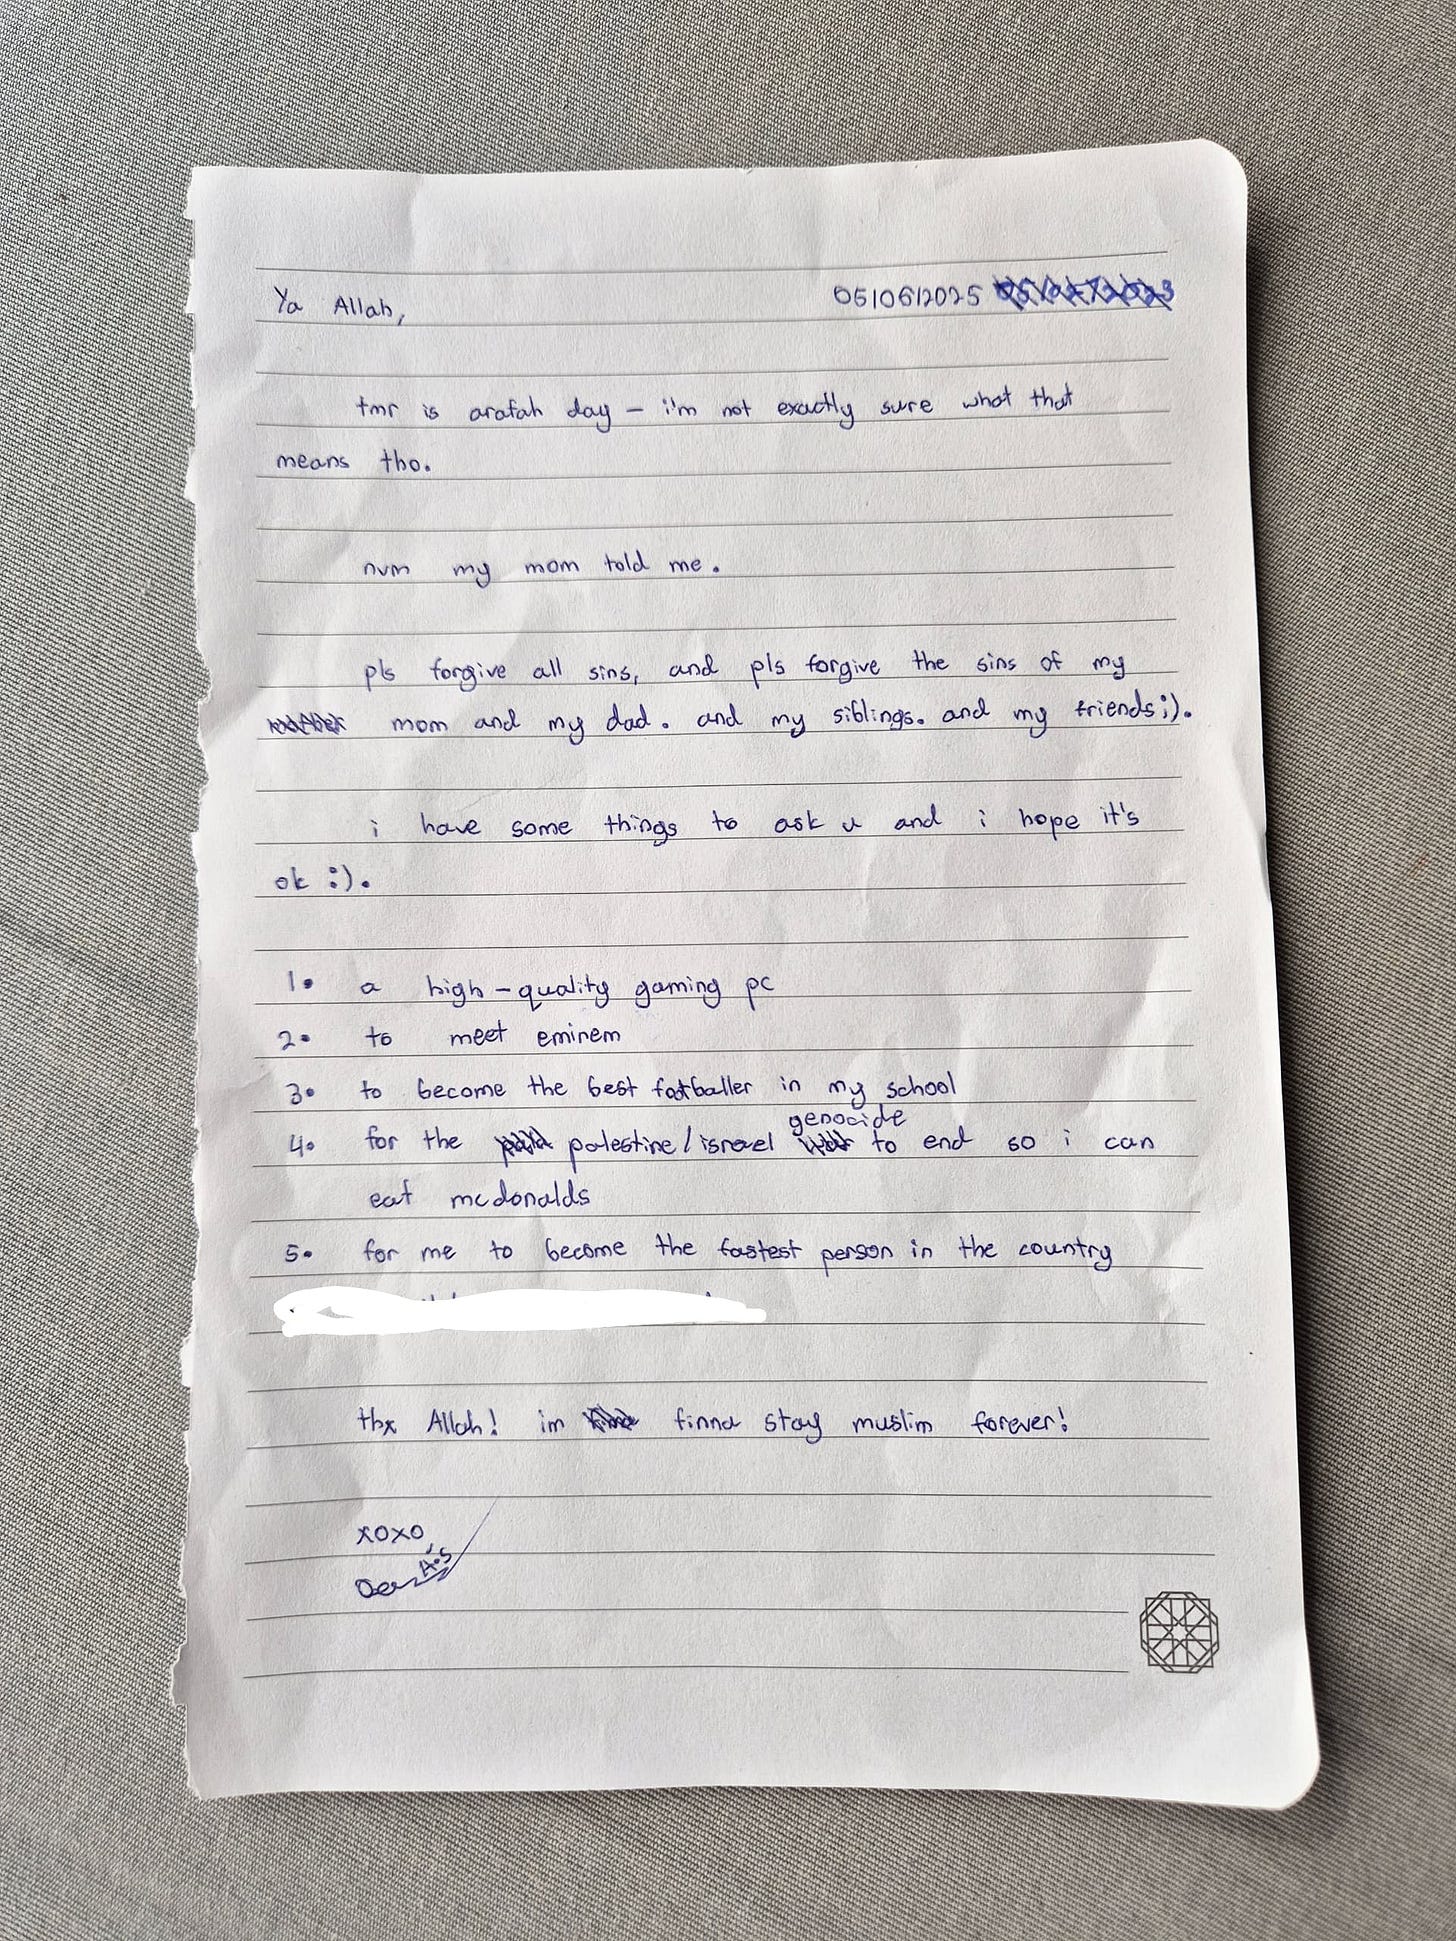 Ya Allah,
05/06/2025
tmr is arafah day – i'm not exactly sure what that
means tho.
nvm my mom told me.
pls forgive all sins, and pls forgive the sins of my
mom and my dad. and my siblings. and my friends;).
i have some things to ask u and i hope it's
ok :).
1. a high-quality gaming pc
2. to meet eminem
3. to become the best footballer in my school
genocide
4. for the palestine/israel to end so i can
eat mcdonalds
5. for me to become the fastest person in the country
thx Allah! im finna stay muslim forever!
xoxo,
A.S